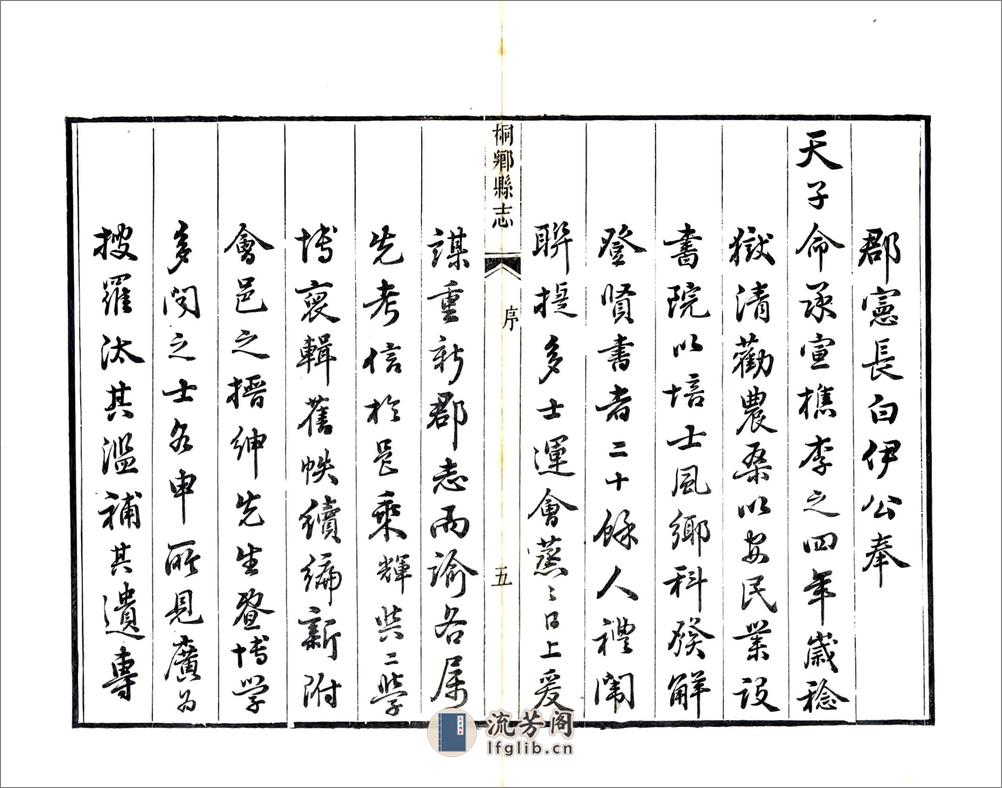 郡憲長白伊公奉
天子命承宣檇李之四年歲稔
獄清勸農桑以安民業設
書院以培士風鄉科發解
登賢書者二十餘人禮闈
聯捷多士運會蒸〻日上爰
桐鄉縣志
序
五
謀重新郡志而諭各属
先考信於是乘輝與二學
博裒輯舊帙續編新附
會邑之搢紳先生暨博学
多聞之士各申所見廣為
搜羅汰其濫補其遺專
流芳阁
lfglib.cn